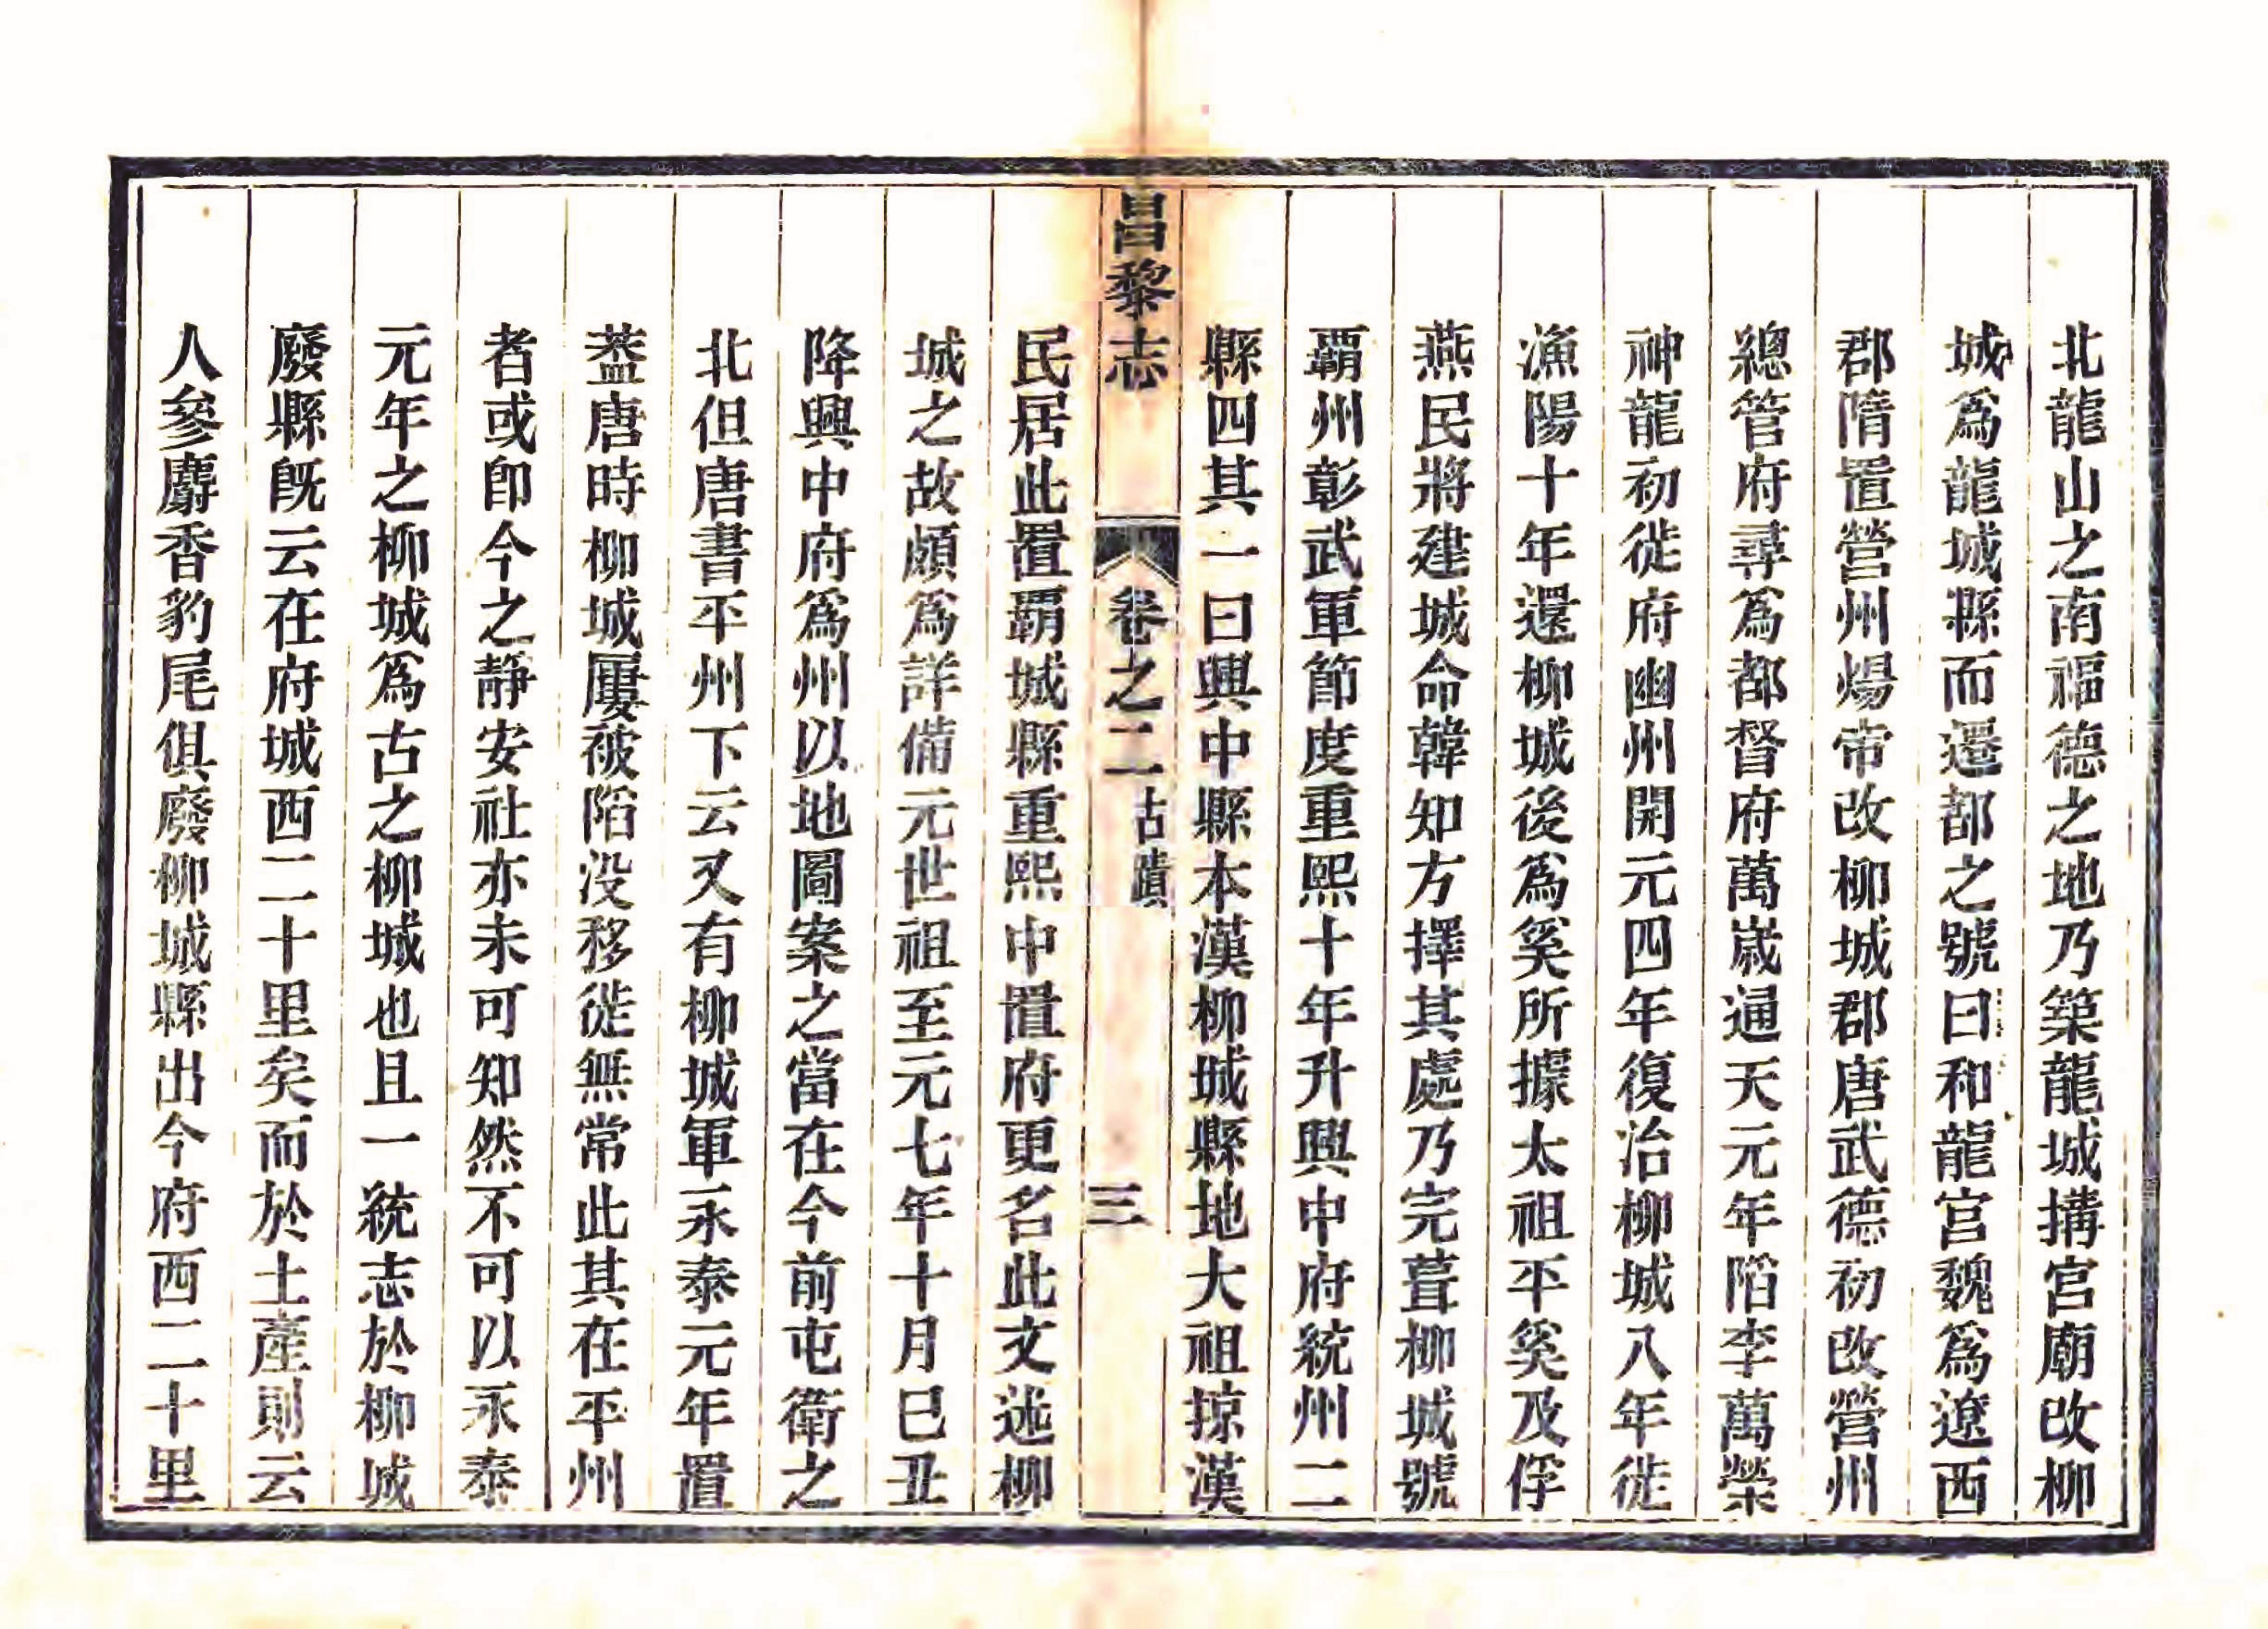 北龍山之南福德之地乃築龍城搆宫廟改柳
城爲龍城縣而遷都之號曰和龍宫魏爲遼西
郡隋置營州煬帝改柳城郡唐武德初改營州
總管府尋爲都督府萬歲通天元年陷李萬榮
神龍初徙府幽州開元四年復治柳城八年徙
漁陽十年還柳城後爲奚所據太祖平奚及俘
燕民將建城命韓知方擇其處乃完葺柳城號
霸州彰武軍節度重熙十年升興中府統州二
縣四其一曰興中縣本漢柳城縣地大祖掠漢
昌黎志 卷之二 古蹟 三
民居此置霸城縣重熙中置府更名此文述柳
城之故頗爲詳備元世祖至元七年十月巳丑
降興中府爲州以地圖案之當在今前屯衛之
北但唐書平州下云又有柳城軍永泰元年置
葢唐時柳城屢被陷没移徙無常此其在平州
者或卽今之靜安社亦未可知然不可以永泰
元年之柳城爲古之柳城也且一統志於柳城
廢縣旣云在府城西二十里矣而於土產則云
人參麝香豹尾俱廢柳城縣出今府西二十里